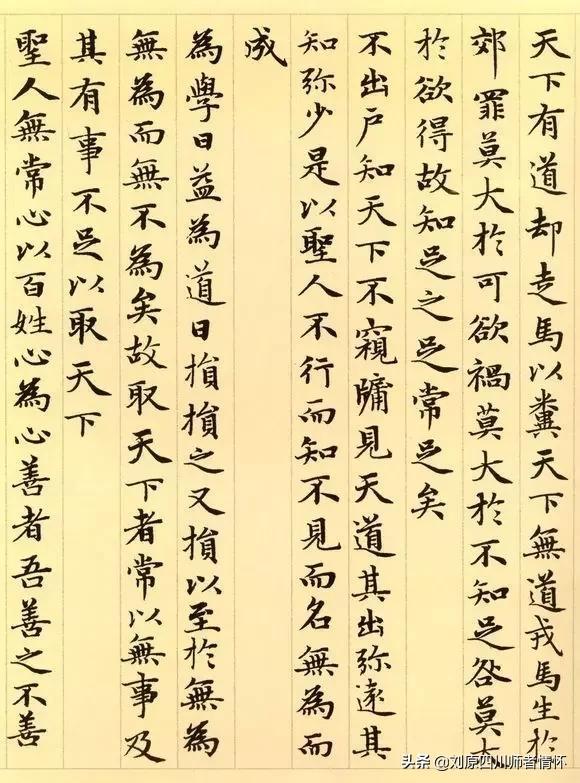 天下有道却走馬以糞天下無道戎馬生於
郊罪莫大於可欲禍莫大於不知足咎莫大
於欲得故知足之足常足矣
不出户知天下不窺牖見天道其出弥遠其
知弥少是以聖人不行而知不見而名無為而
成
為學日益為道日損損之又損以至於無為
無為而無不為矣故取天下者常以無事及
其有事不足以取天下
聖人無常心以百姓心為心善者吾善之不善
头条 @刘原四川师者情怀